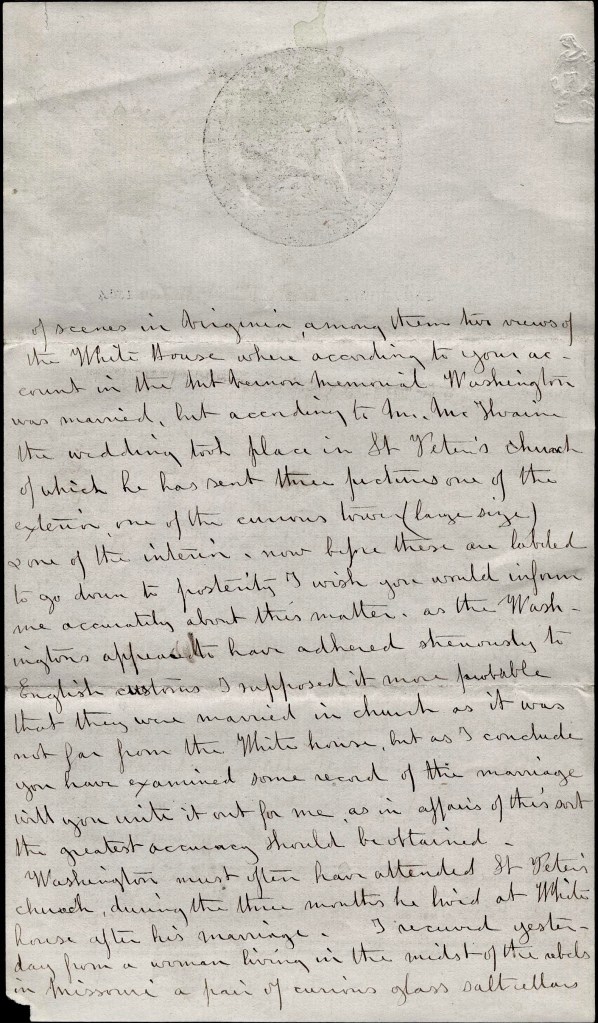 of scenes in Virginia, among them two views of
the White House where according to your ac-
count in the Mt Vernon Memorial Washington
was married, but according to Mr. McIlvaine
the wedding took place in St Peter's church
of which he has sent three pictures one of the
exterior, one of the curious tower (large size)
& one of the interior. now before these are labeled
to go down to posterity I wish you would inform
me accurately about this matter. as the Wash-
ingtons appear to have adhered strenuously to
English customs I supposed it more probable
that they were married in church as it was
not far from the White house, but as I conclude
you have examined some record of the marriage
will you write it out for me, as in affairs of this sort
the greatest accuracy should be obtained.
Washington must often have attended St Peter's
church, during the three months he lived at White
house after his marriage. I received yester-
day from a woman living in the midst of the rebels
in Missouri a pair of curious glass saltcellars